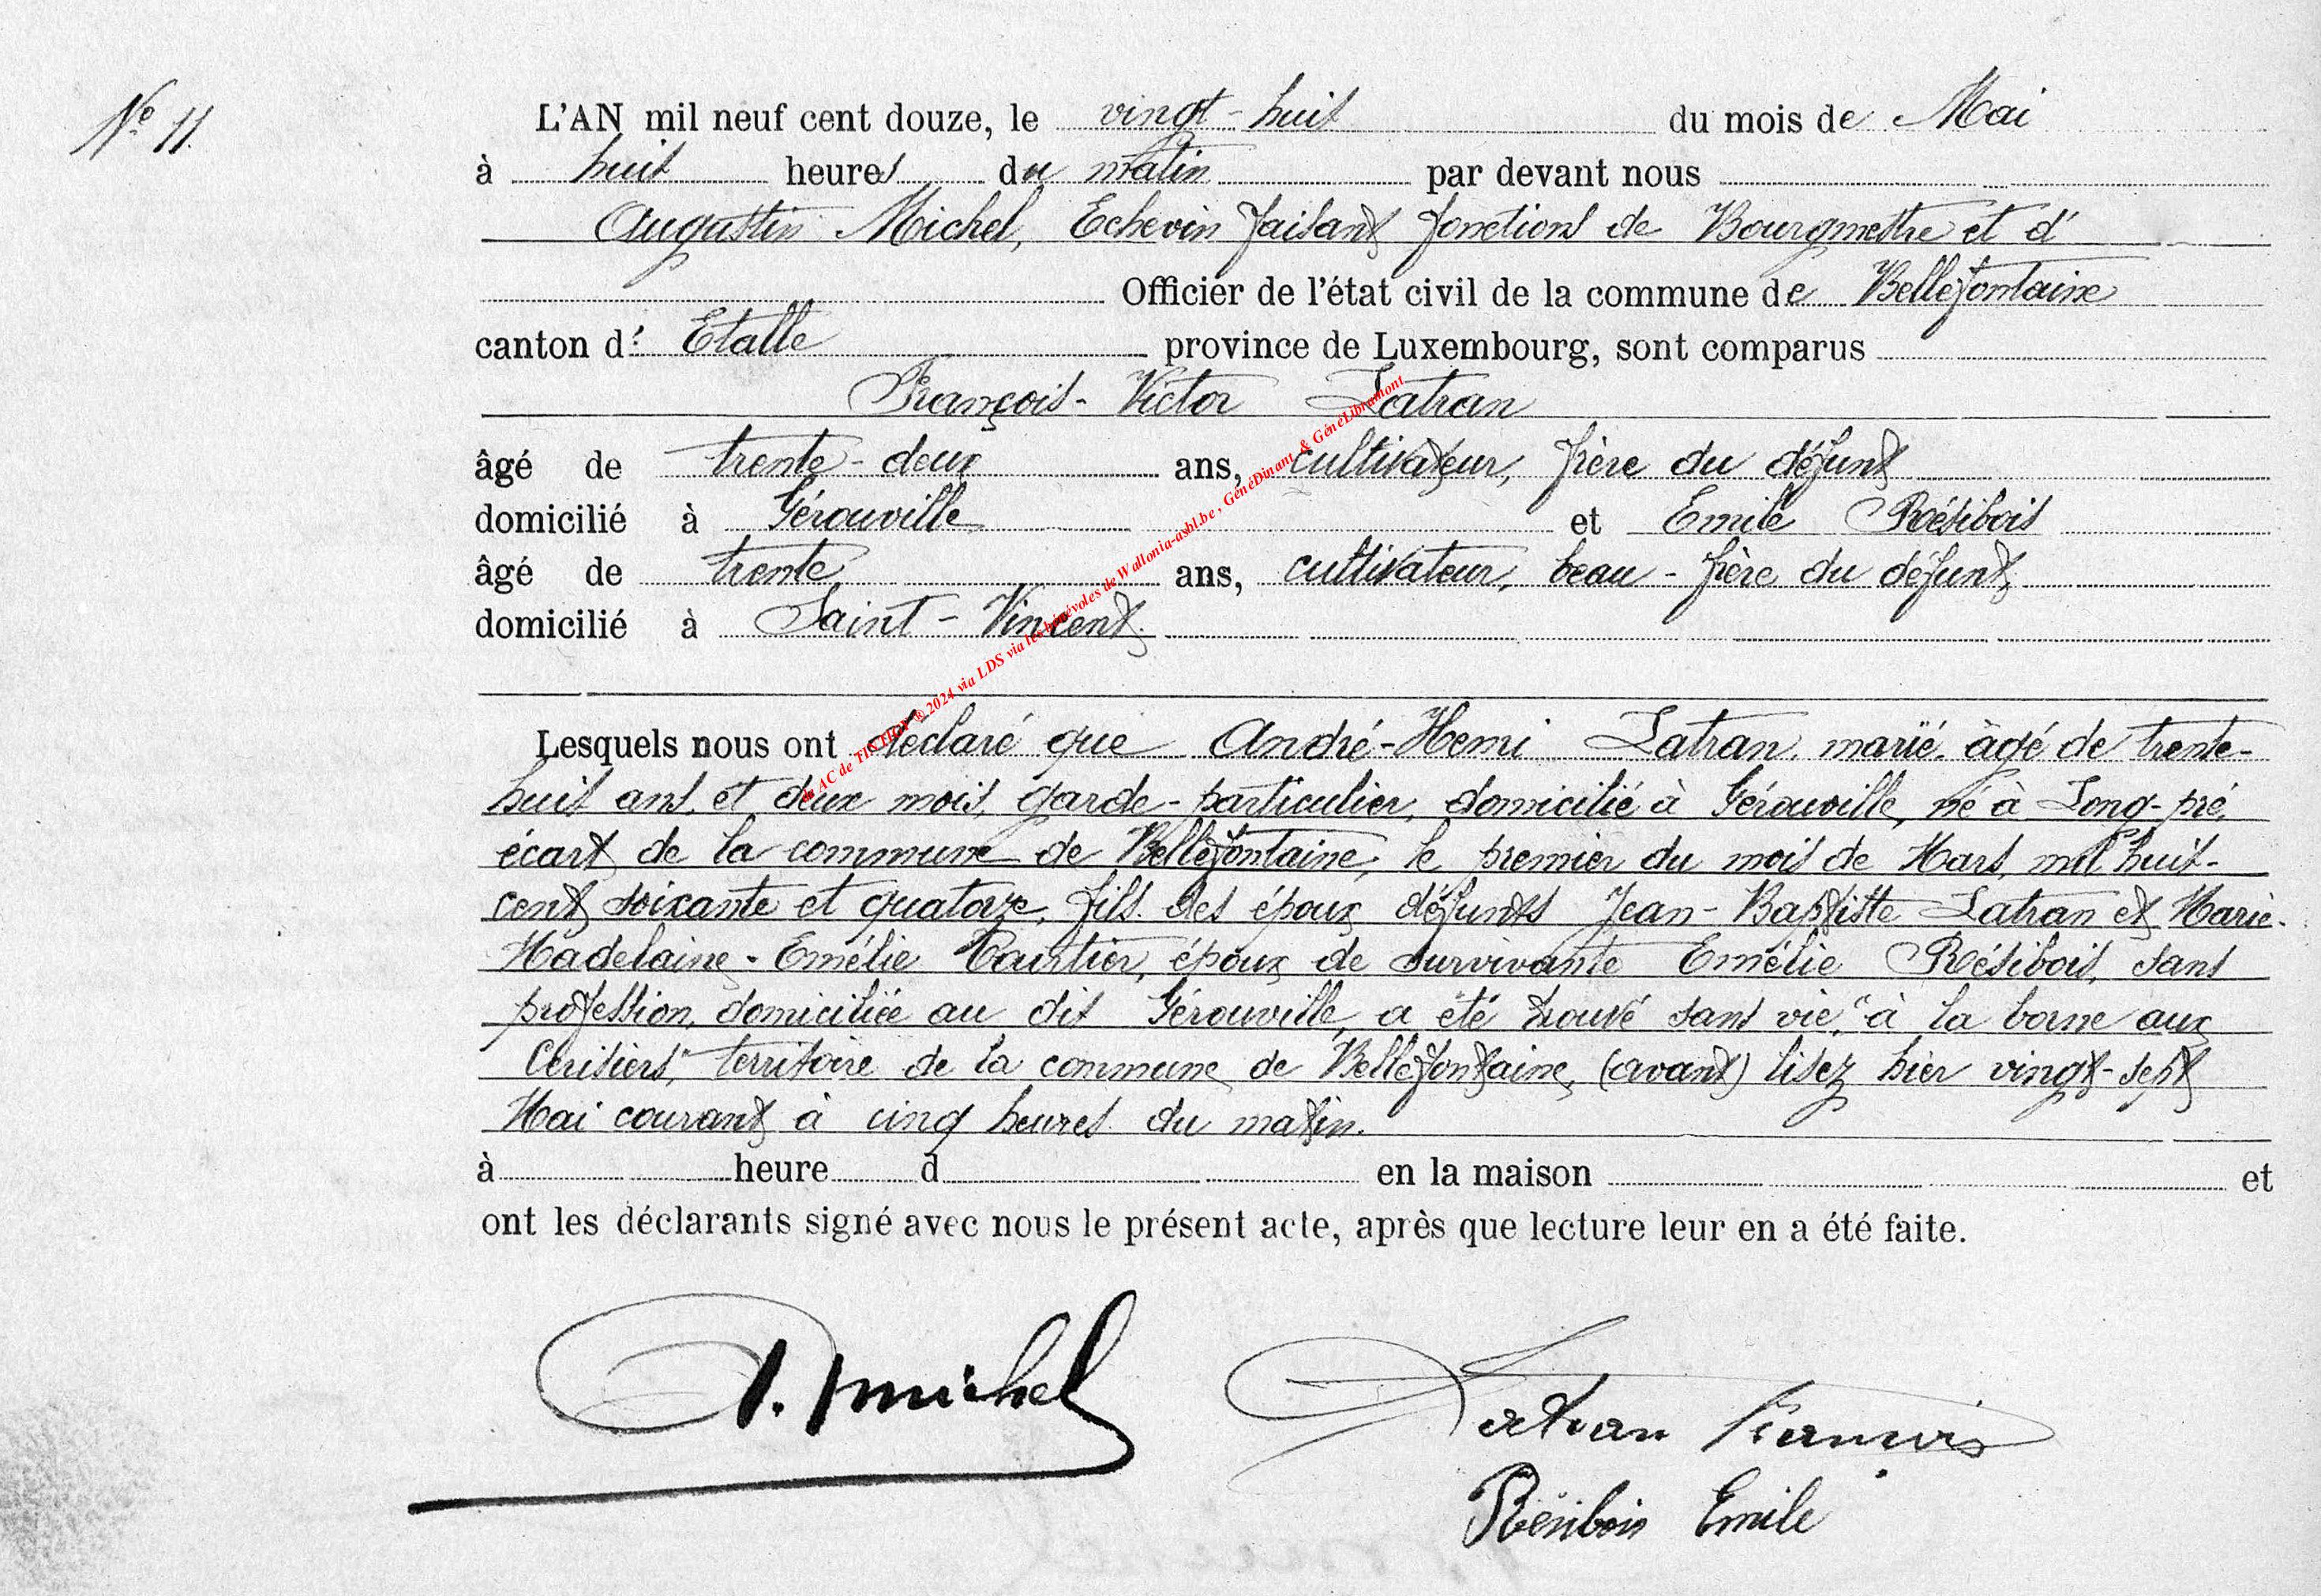 Nº 11.
L'AN mil neuf cent douze, le vingt-huit du mois de Mai
à huit heures du matin par devant nous
Augustin Michel, Echevin faisant fonctions de Bourgmestre et d'
Officier de l'état civil de la commune de Bellefontaine
canton d' Etalle province de Luxembourg, sont comparus
François-Victor Latran
âgé de trente-deux ans, cultivateur, frère du défunt
domicilié à Gérouville et Emile Résibois
âgé de trente ans, cultivateur, beau-frère du défunt,
domicilié à Saint-Vincent.
Lesquels nous ont déclaré que André-Henri Latran, marié, âgé de trente-
huit ans, et deux mois, garde-particulier, domicilié à Gérouville, né à Long-pré,
écart de la commune de Bellefontaine, le premier du mois de Mars, mil huit-
cent soixante et quatorze, fils des époux défunts Jean-Baptiste Latran et Marie-
Madelaine-Emélie époux de survivante Emélie Résibois, sans
profession, domiciliée au dit Gérouville, a été trouvé sans vie, "à la borne aux
Cerisiers," territoire de la commune de Bellefontaine, (avant) lisez hier vingt-sept
Mai courant à cinq heures du matin.
à heure d en la maison et
ont les déclarants signé avec nous le présent acte, après que lecture leur en a été faite.
A. Michel
Latran François
Résibois Emile
AC de TINTIGNY ® 2024 via LDS via les bénévoles de Wallonia-asbl.be, GénéDinant & GénéLibramont